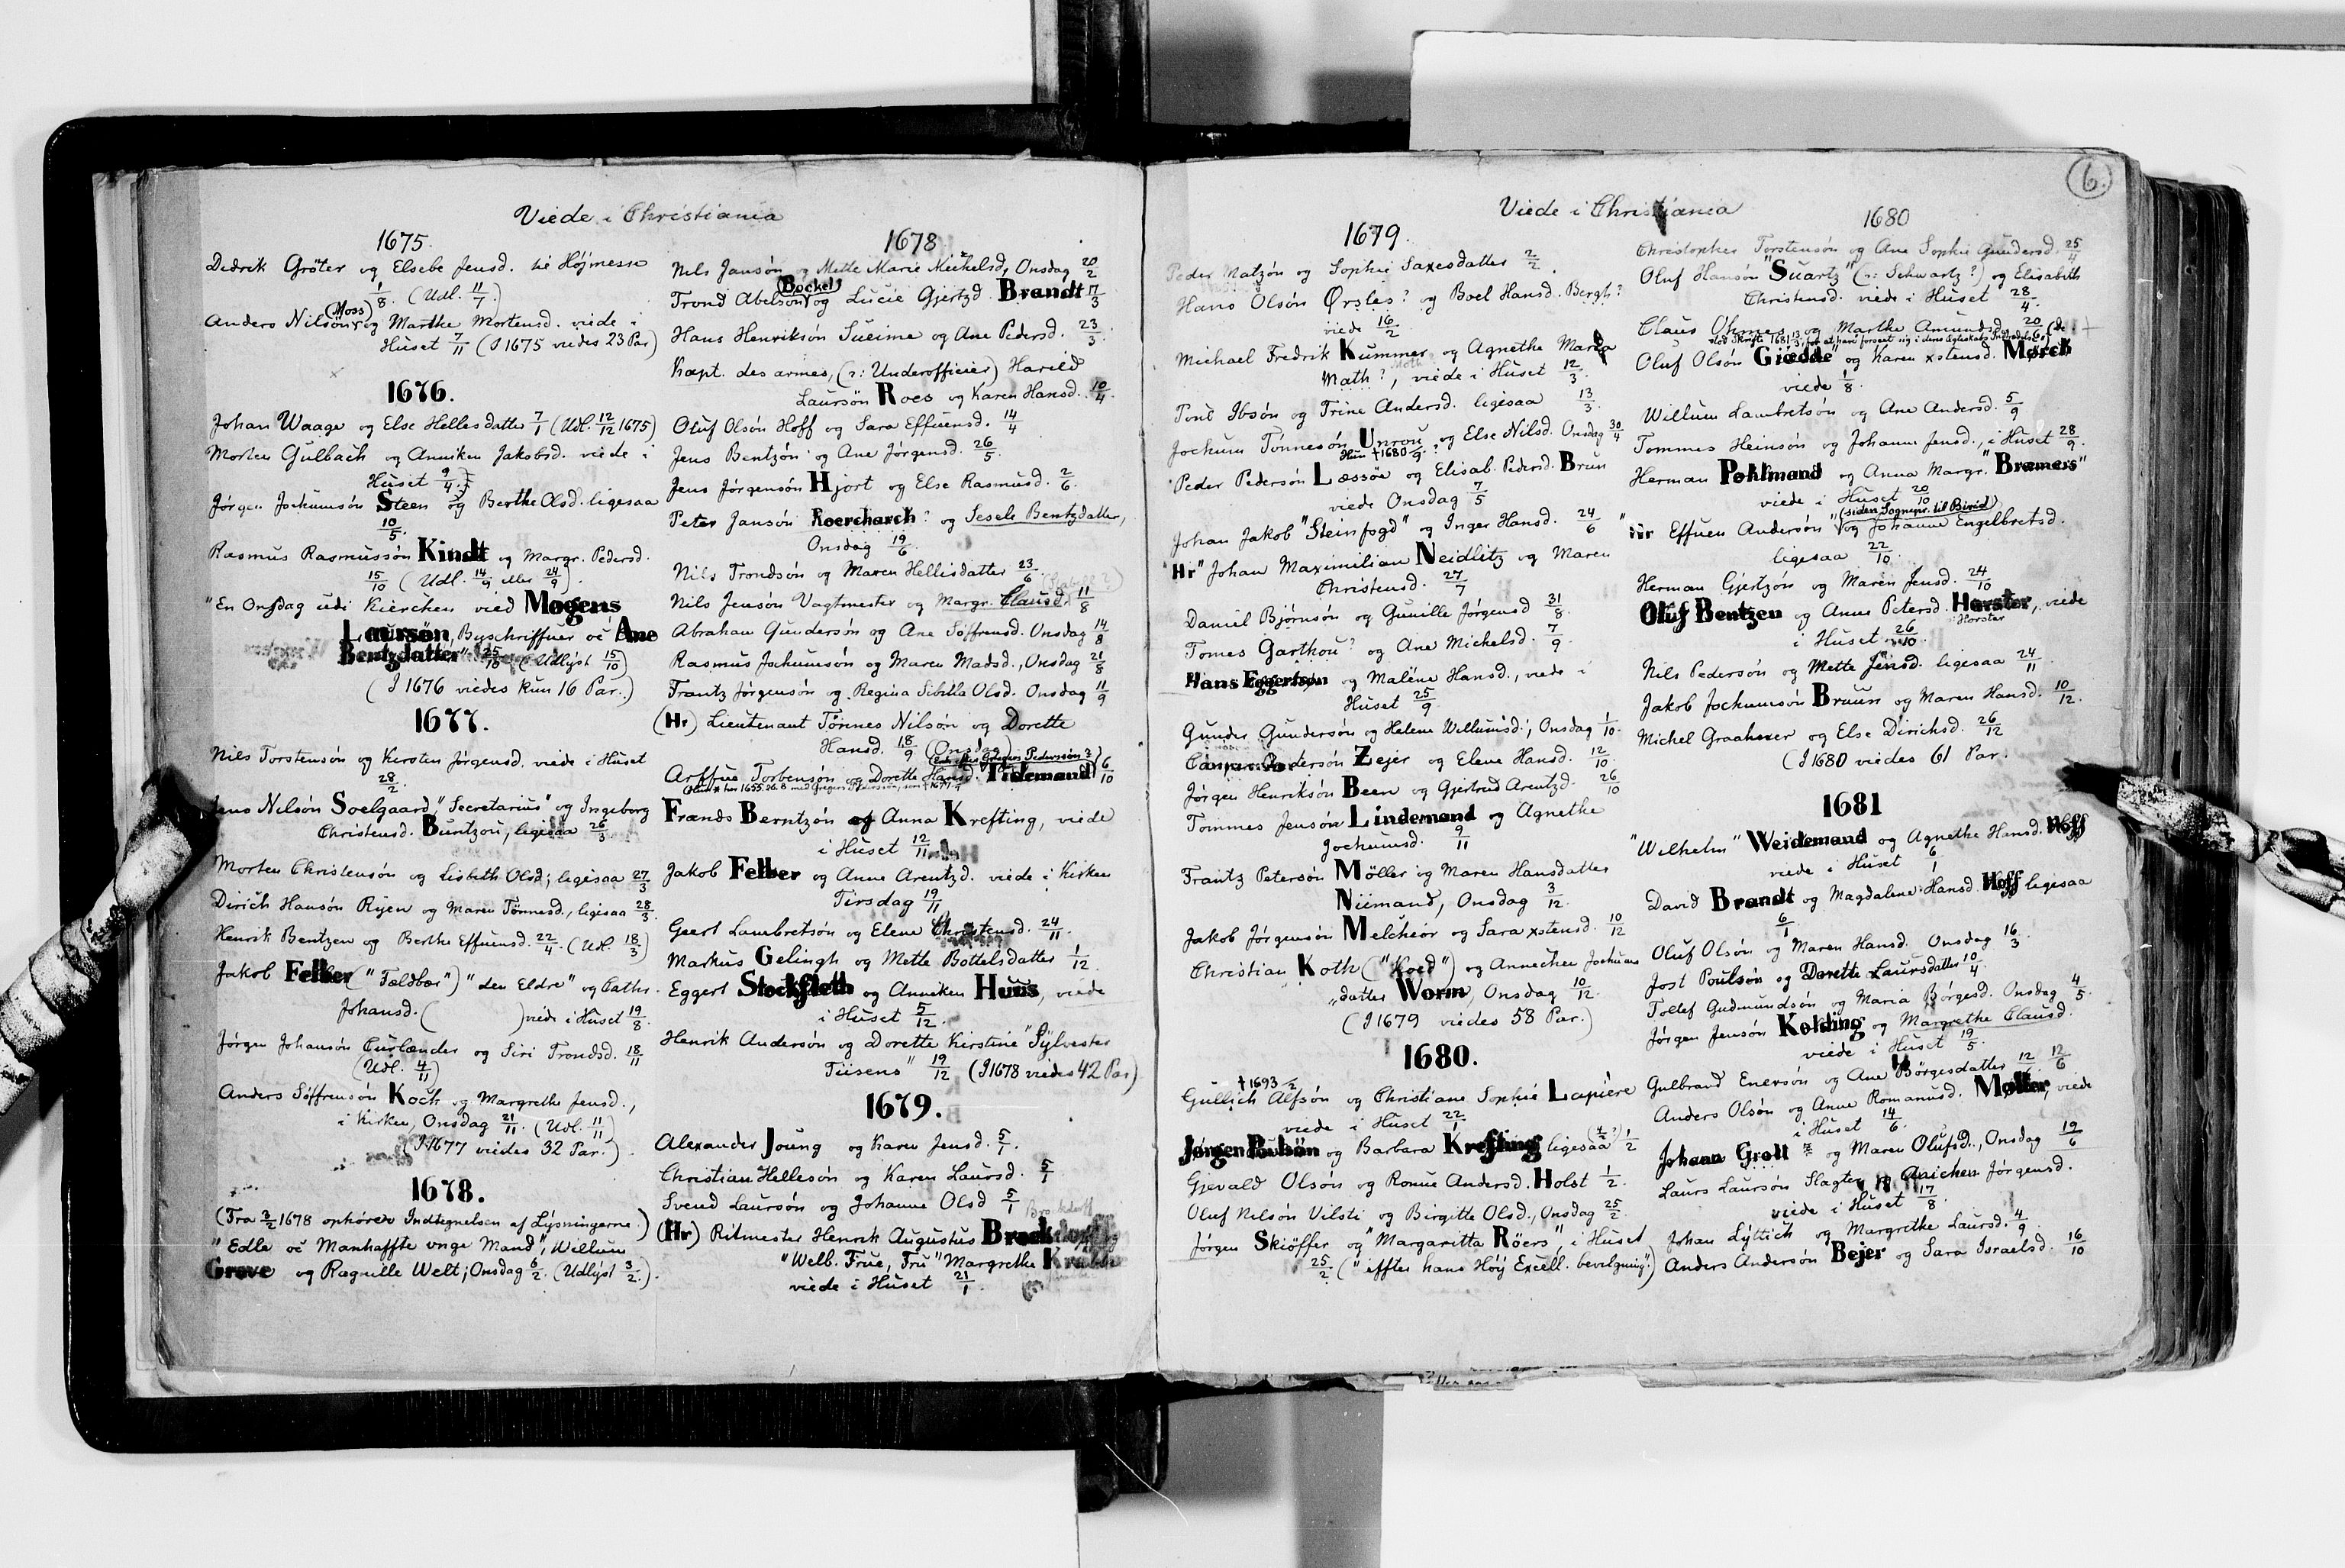 Viede i Christiania
1675.
Didrik Gröter og Elsebe Jensd. til Højmesse
1/8. (Udl. 11/7.)
(Moss)
Anders Nilsön og Marthe Mortensd. viede i
Huset 7/11 (I 1675 viedes 23 Par)
1676.
Johan Waage og Else Hellesdatter 7/1 (Udl. 12/12 1675)
Morten Gulbach og Anniken Jakobsd. viede i
Huset 9/4.
Jörgen Jochumsön Steen og Berthe Olsd. ligesaa
10/5.
Rasmus Rasmussön Kindt og Margr. Pedersd.
15/10 (Udl. 14/9 eller 24/9).
"En Onsdag udi Kierchen vied Mogens
Laursøn, Byschriffuer oc Ane
Bentzdatter" 25/10 (Udlyst 15/10)
(I 1676 viedes kun 16 Par.)
1677.
Nils Torstensön og Kirsten Jörgensd. viede i Huset
28/2.
Jens Nilsön Soelgaard, "Secretarius" og Ingeborg
Christensd. Buntzou, ligesaa 26/3.
Morten Christensön og Lisbeth Olsd, ligesaa 27/3
Dirich Hansön Rijen og Maren Tönnesd., ligesaa 28/3.
Henrik Bentzen og Berthe Effuensd. 22/4. (Udl. 18/3)
Jakob Felber ("Fældbær") "den Eldre" og Cathr.
Johansd. ( ) viede i Huset 19/8.
Jörgen Johansön Curlænder og Siri Trondsd. 18/11
(Udl. 4/11)
Anders Söffrensön Koch og Margrethe Jensd.,
i Kirken, Onsdag 21/11. (Udl. 11/11)
(I 1677 viedes 32 Par.)
1678.
(Fra 3/2 1678 ophörer Indtegnelsen af Lysningerne.)
"Edle oc Manhaffte vnge Mand", Willum
Grove og Ragnille Welt, Onsdag 6/2. (Udlyst 3/2.)
1678
Nils Jansön og Mette Marie Meickelsd, Onsdag 20/2
(Bockel)
Trond Abelsön og Lucie Gjertzd. Brandt 17/3
Hans Henriksön Sueime og Ane Pedersd. 23/3.
Kapt. des armes, (ɔ: Underofficier) Harild
Laursön Roes og Karen Hansd. 10/4.
Oluf Olsön Hoff og Sara Effuensd. 14/4
Jens Bentzön og Ane Jörgensd. 26/5.
Jens Jörgensön Hjort og Else Rasmusd. 2/6.
Peter Jansön Roercharch? og Sesele Bentzdatter,
Onsdag 19/6.
Nils Trondsön og Maren Hellisdatter 23/6
Nils Jensön Vagtmester og Margr. Clausd. 11/8
Abraham Gundersön og Ane Söffrensd. Onsdag 14/8
Rasmus Jochumsön og Maren Madsd., Onsdag 21/8
Frantz Jörgensön og Regina Sibilla Olsd. Onsdag 11/9
(Hr) Lieutenant Tönnes Nilsön og Dorette
Hansd. 18/9 (Onsdag)
Arffue Torbensön og Dorette Hansd. Tidemand 6/10
Frands Berntzön og Anna Krefting, viede
i Huset 12/11
Jakob Felber og Anne Arentzd. viede i Kirken
Tirsdag 19/11
Geert Lambretsön og Elene Christensd. 24/11.
Markus Gelingh og Mette Bottelsdatter 1/12.
Eggert Stockfleth og Anniken Huus, viede
i Huset 5/12.
Henrik Andersön og Dorette Kirstine "Sylvester
Tiisens" 19/12 (I 1678 viedes 42 Par)
1679.
Alexander Joung og Karen Jensd. 5/1.
Christian Hellesön og Karen Laursd. 5/1
Svend Laursön og Johanne Olsd 5/1
(Hr) Ritmester Henrich Augustus Brockdorff og
"Welb. Frue, Fru" Margrethe Krabbe
viede i Huset 21/1.
6.
Viede i Christiania
1679.
Peder Matzön og Sophie Saxesdatter 2/2.
Hans Olsön Ørsles? og Boel Hansd. Bergh?
viede 16/2
Michael Fredrik Kummer og Agnethe Maria
Math?, viede i Huset 12/3.
Poul Ibsön og Trine Andersd. ligesaa 13/3.
Jochum Tönnesön Unrou og Else Nilsd. Onsdag 30/4
Peder Pedersön Læssöe og Elisab. Pedersd. Brun
viede Onsdag 7/5
Johan Jakob "Steinfogd" og Inger Hansd. 24/6
"Hr" Johan Maximilian Neidlitz og Maren
Christensd. 27/7
Daniel Björnsön og Gunille Jörgensd 31/8.
Tomes Garthou? og Ane Mickelsd. 7/9.
Hans Eggertsøn og Maléne Hansd., viede i
Huset 25/9
Gunder Gundersön og Helene Wellumsd., Onsdag 1/10.
Pedersön Zejer og Elene Hansd. 12/10.
Jörgen Henriksön Been og Gjertrud Arentzd. 26/10
Tommes Jensön Lindemand og Agnethe
Jochumsd. 9/11
Frantz Petersön Möller og Maren Hansdatter
Niimand, Onsdag 3/12.
Jakob Jörgensön Melchior og Sara xstensd. 10/12
Christian Koth ("Koed") og Annechen Jochums
datter Worm, Onsdag 10/12.
(I 1679 viedes 58 Par.)
1680.
† 1693
Gullich Alfsön og Christiane Sophie Lapiere
viede i Huset 22/1
Jørgen Pouлsön og Barbara Krefting ligesaa 1/2
Gjevald Olsön og Ronue Andersd. Holst 1/2.
Oluf Nilsön Vilsti og Birgitte Olsd., Onsdag 25/2
Jörgen Skiöffer og "Margaritta Röers", i Huset
25/2 ("effter hans Höij Excell. bevilgning".)
1680
Christopher Torstensön og Ane Sophie Gundersd. 25/4
Oluf Hansön "Suartz" (ɔ: Schwartz?) og Elisabeth
Christensd. viede i Huset 28/4.
Claus Ohmes og Marthe Amundsd. 20/6
Oluf Olsön Giedde" og Karen xstensd. Mørch
viede 1/8.
Willum Lambretsön og Ane Andersd. 5/9
Tommes Heinsön og Johanne Jensd., i Huset 28/9.
Herman Pohlmand og Anna Margr. "Bremers"
viede i Huset 20/10
(siden Sognepr. til Birid)
"Hr Effuen Andersön" og Johanne Engelbretsd.
ligesaa 22/10.
Herman Gjertzön og Maren Jensd. 24/10
Oluf Bentzen og Anne Petersd. Horster, viede
Horster
i Huset 26/10
Nils Pedersön og Mette Jensd. ligesaa 24/11
Jakob Jochumsön Bruun og Maren Hansd. 10/12.
Michel Graahuer og Else Dirichsd. 26/12
(I 1680 viedes 61 Par.
1681
"Wilhelm" Weidemand og Agnethe Hansd. Hoff
viede i Huset 6/1
David Brandt og Magdalene Hansd. Hoff ligesaa
6/1
Oluf Olsön og Maren Hansd. Onsdag 16/3.
Jost Poulsön og Dorette Laursdatter 10/4.
Tollef Gudmundsön og Maria Börgesd. Onsdag 4/5.
Jörgen Jensön Kolding og Margrethe Clausd.
viede i Huset 19/5.
Gulbrand Enersön og Ane Börgesdatter 12/6
Anders Olsön og Anne Romanusd. Møller, viede
i Huset 14/6.
Johann Grott og Maren Olufsd., Onsdag 19/6
Laurs Laursön Slagter og Anichen Jörgensd.
viede i Huset 17/8.
Johan Lyttich og Margrethe Laursd. 4/9.
Anders Andersön Bejer og Sara Israelsd. 16/10